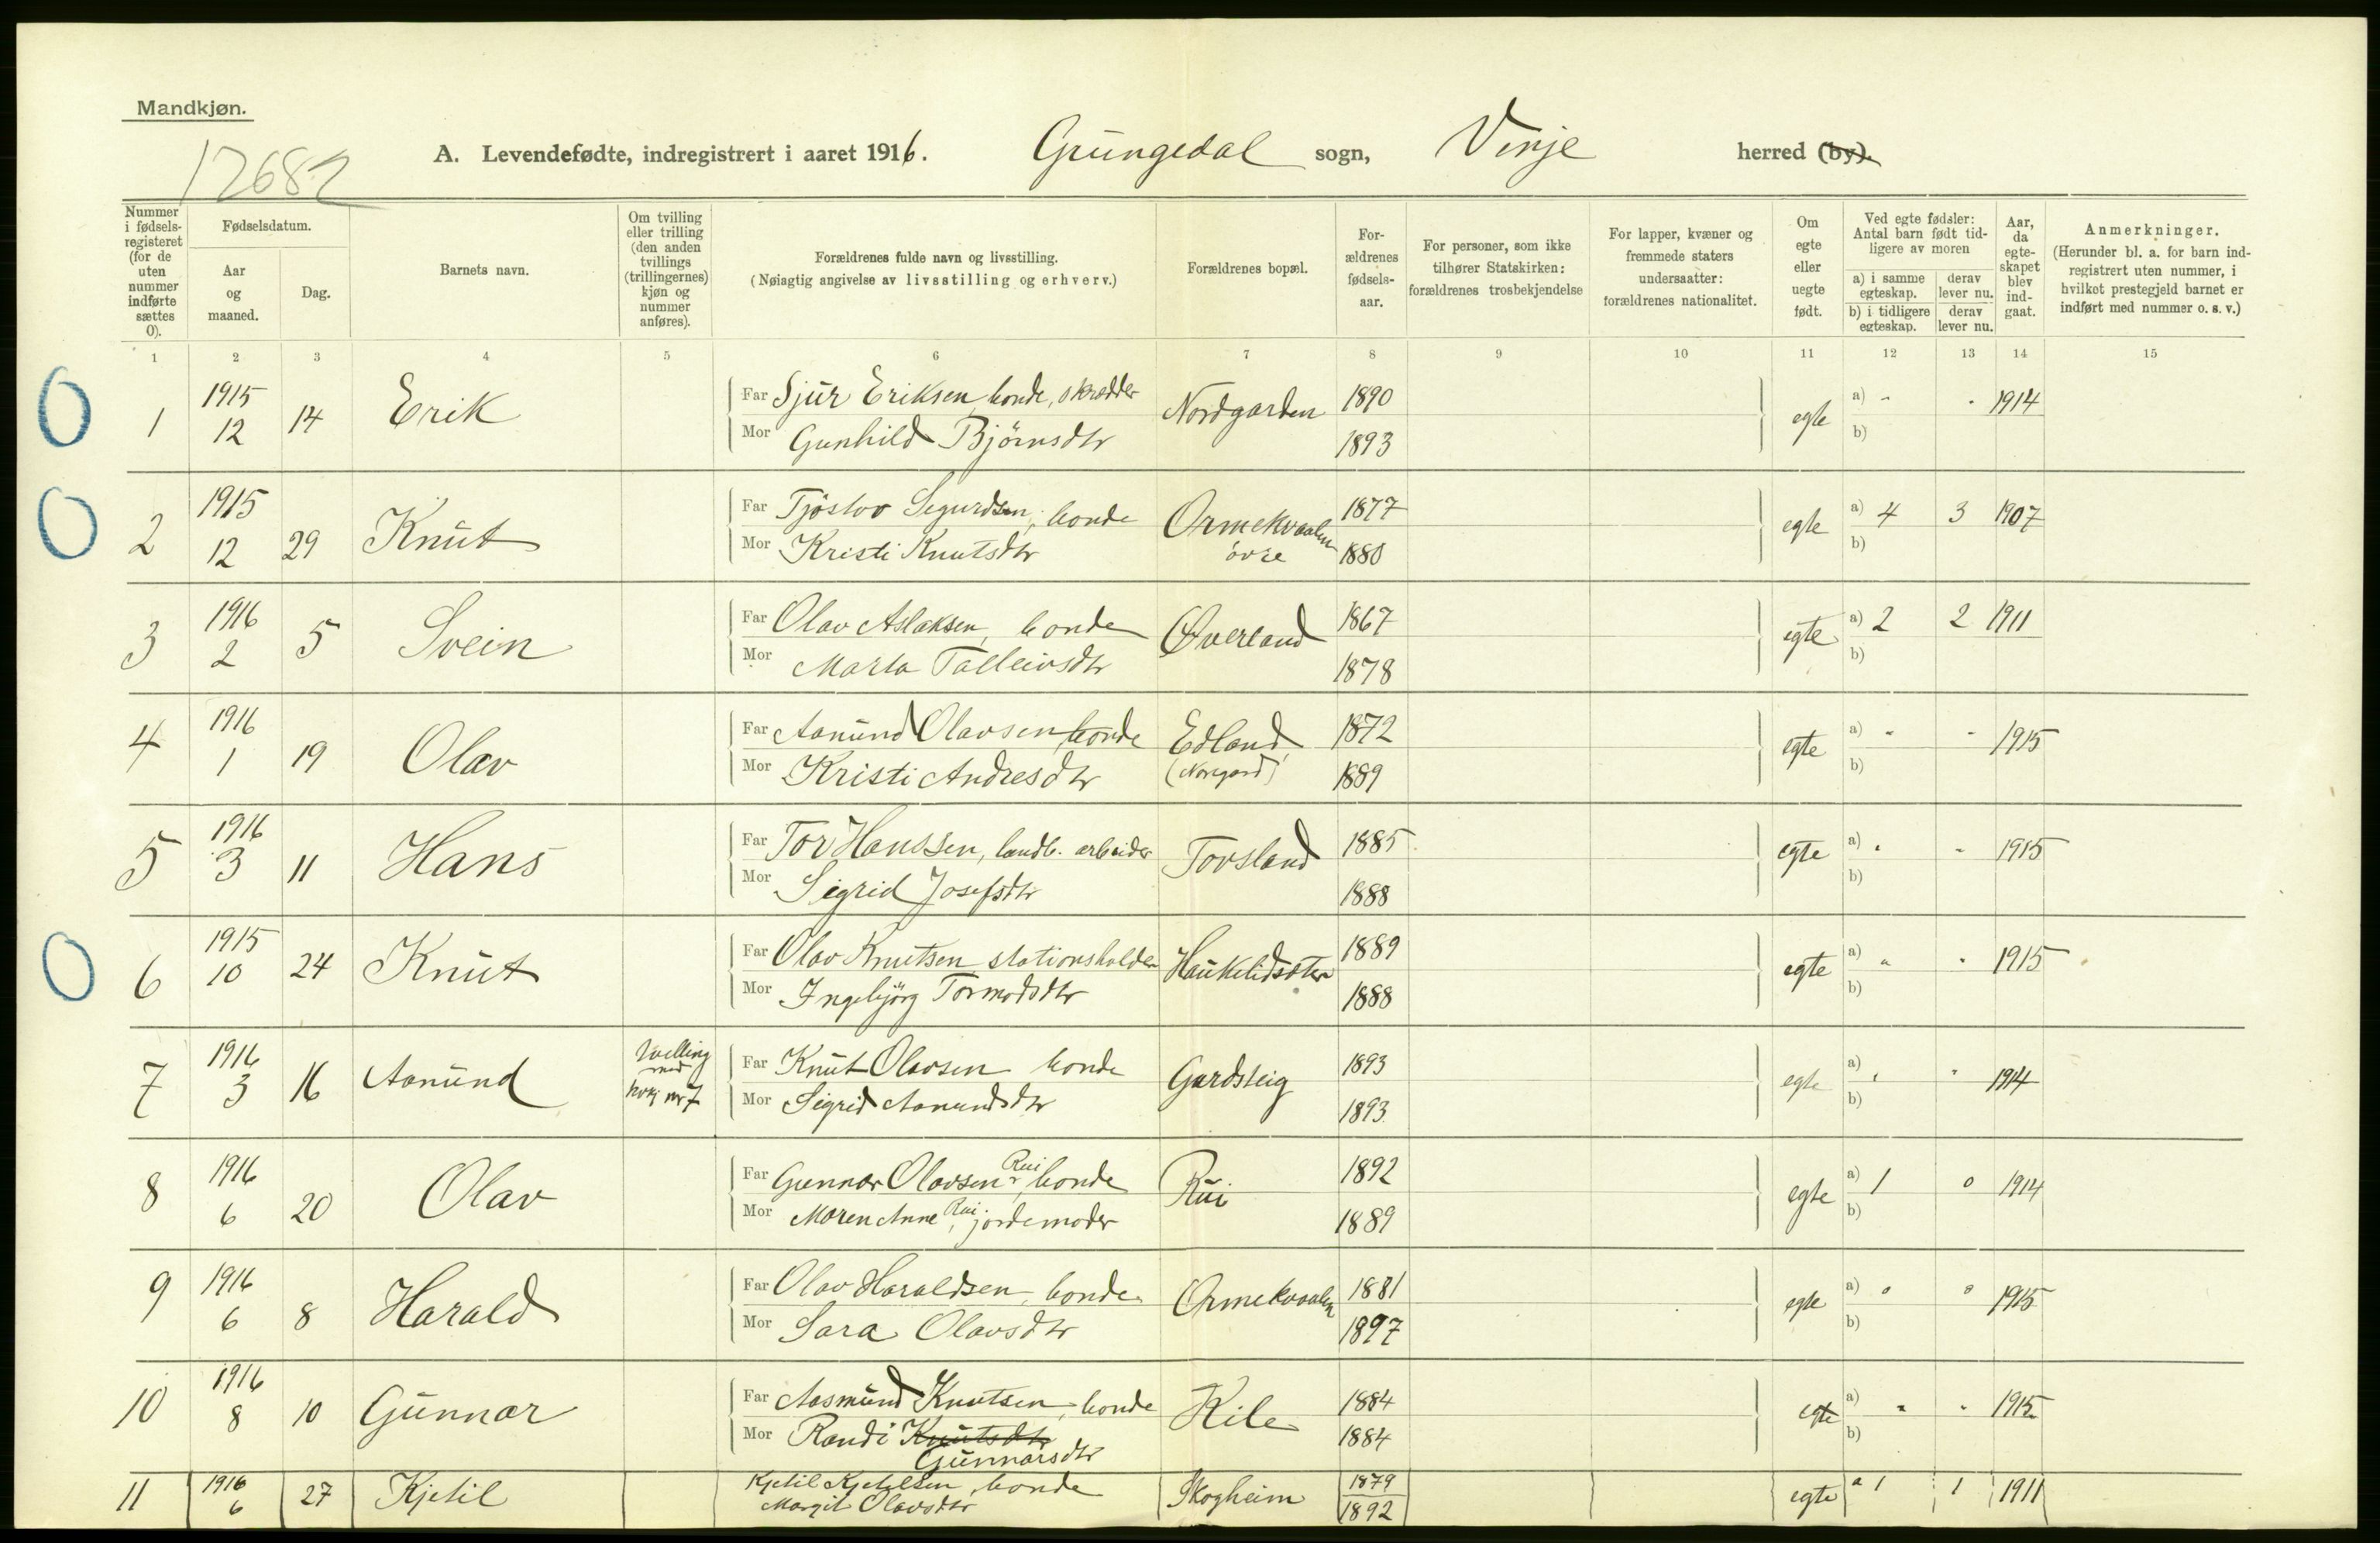 Mandkjøn.
12682
A. Levendefødte, indregistrert i aaret 1916. Grungedal sogn, Vinje herred (by).
Nummer i fødsels-registeret (for de uten nummer indførte sættes 0).
Fødselsdatum.
Aar og maaned.
Dag.
Barnets navn.
Om tvilling eller trilling (den anden tvillings (trillingernes) kjøn og nummer anføres).
Forældrenes fulde navn og livsstilling.
(Nøiagtig angivelse av livsstilling og erhverv.)
Forældrenes bopæl.
For-ældrenes fødsels-aar.
For personer, som ikke tilhører Statskirken: forældrenes trosbekjendelse
For lapper, kvæner og fremmede staters undersaatter: forældrenes nationalitet.
Om egte eller uegte født.
Ved egte fødsler: Antal barn født tid-ligere av moren
a) i samme egteskap. derav lever nu.
b) i tidligere egteskap. derav lever nu.
Aar, da egte-skapet blev ind-gaat.
Anmerkninger.
(Herunder bl. a. for barn ind-registrert uten nummer, i hvilket prestegjeld barnet er indført med nummer o. s. v.)
1 2 3 4 5 6 7 8 9 10 11 12 13 14 15
0 1 1915 12 14 Erik Far Sjur Eriksen, bonde, skrædder Nordgarden 1890 egte a) " " 1914
Mor Gunhild Bjørnsdtr 1893 b)
0 2 1915 12 29 Knut Far Tjöstov Sigurdsen, bonde Ormekvaalen 1877 egte a) 4 3 1907
Mor Kristi Knutsdtr övre 1880 b)
3 1916 2 5 Svein Far Olav Aslaksen, bonde Øverland 1867 egte a) 2 2 1911
Mor Marta Talleivsdtr 1878 b)
4 1916 1 19 Olav Far Aanund Olavsen, bonde Edland 1872 egte a) " " 1915
Mor Kristi Andresdtr (Norgard) 1889 b)
5 1916 3 11 Hans Far Tor Hanssen, landb. arbeider Tovsland 1885 egte a) " " 1915
Mor Sigrid Josefsdtr 1888 b)
0 6 1915 10 24 Knut Far Olav Knutsen stationsholder Haukelidsæter 1889 egte a) " " 1915
Mor Ingebjörg Tormodsdtr 1888 b)
7 1916 3 16 Aanund tvilling med kvkj nr 7 Far Knut Olavsen bonde Gardsteig 1893 egte a) " " 1914
Mor Sigrid Aanundsdtr 1893 b)
8 1916 6 20 Olav Far Gunnar Olavsen Rui, bonde Rui 1892 egte a) 1 0 1914
Mor Maren Anne Rui, jordemoder 1889 b)
9 1916 6 8 Harald Far Olav Haraldsen, bonde Ormekvaalen 1881 egte a) " " 1915
Mor Sara Olavsdtr 1897 b)
10 1916 8 10 Gunnar Far Aasmund Knutsen, bonde Kile 1884 egte a) " " 1915
Mor Randi Knutsdtr 1884 b)
Gunnarsdtr
11 1916 6 27 Kjetil Kjetil Kjetilsen, bonde Skogheim 1879 egte a 1 1 1911
Margit Olavsdtr 1892